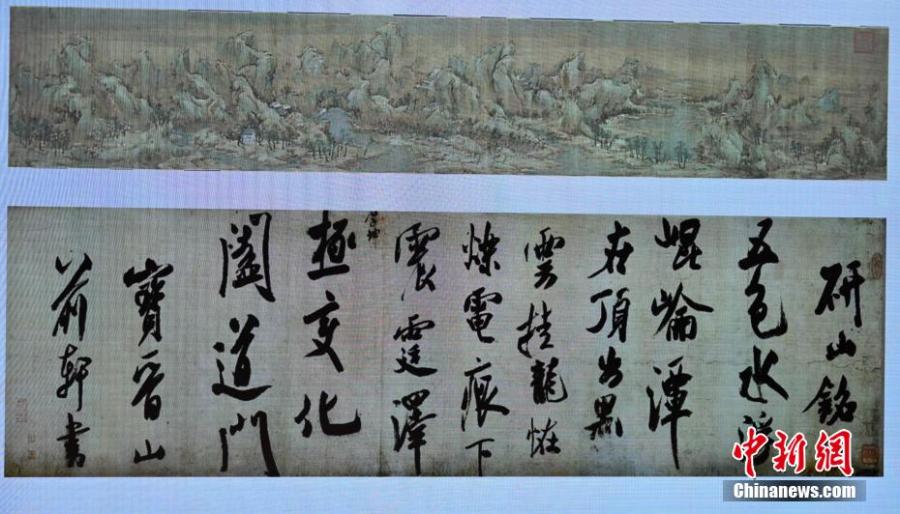 研山銘
五色水浮
崐崘潭
在頂出黑
雲挂龍怪
爍電痕下
震霆澤
厚坤
極變化
闔道門
寶晉山
前軒書
中新网
Chinanews.com